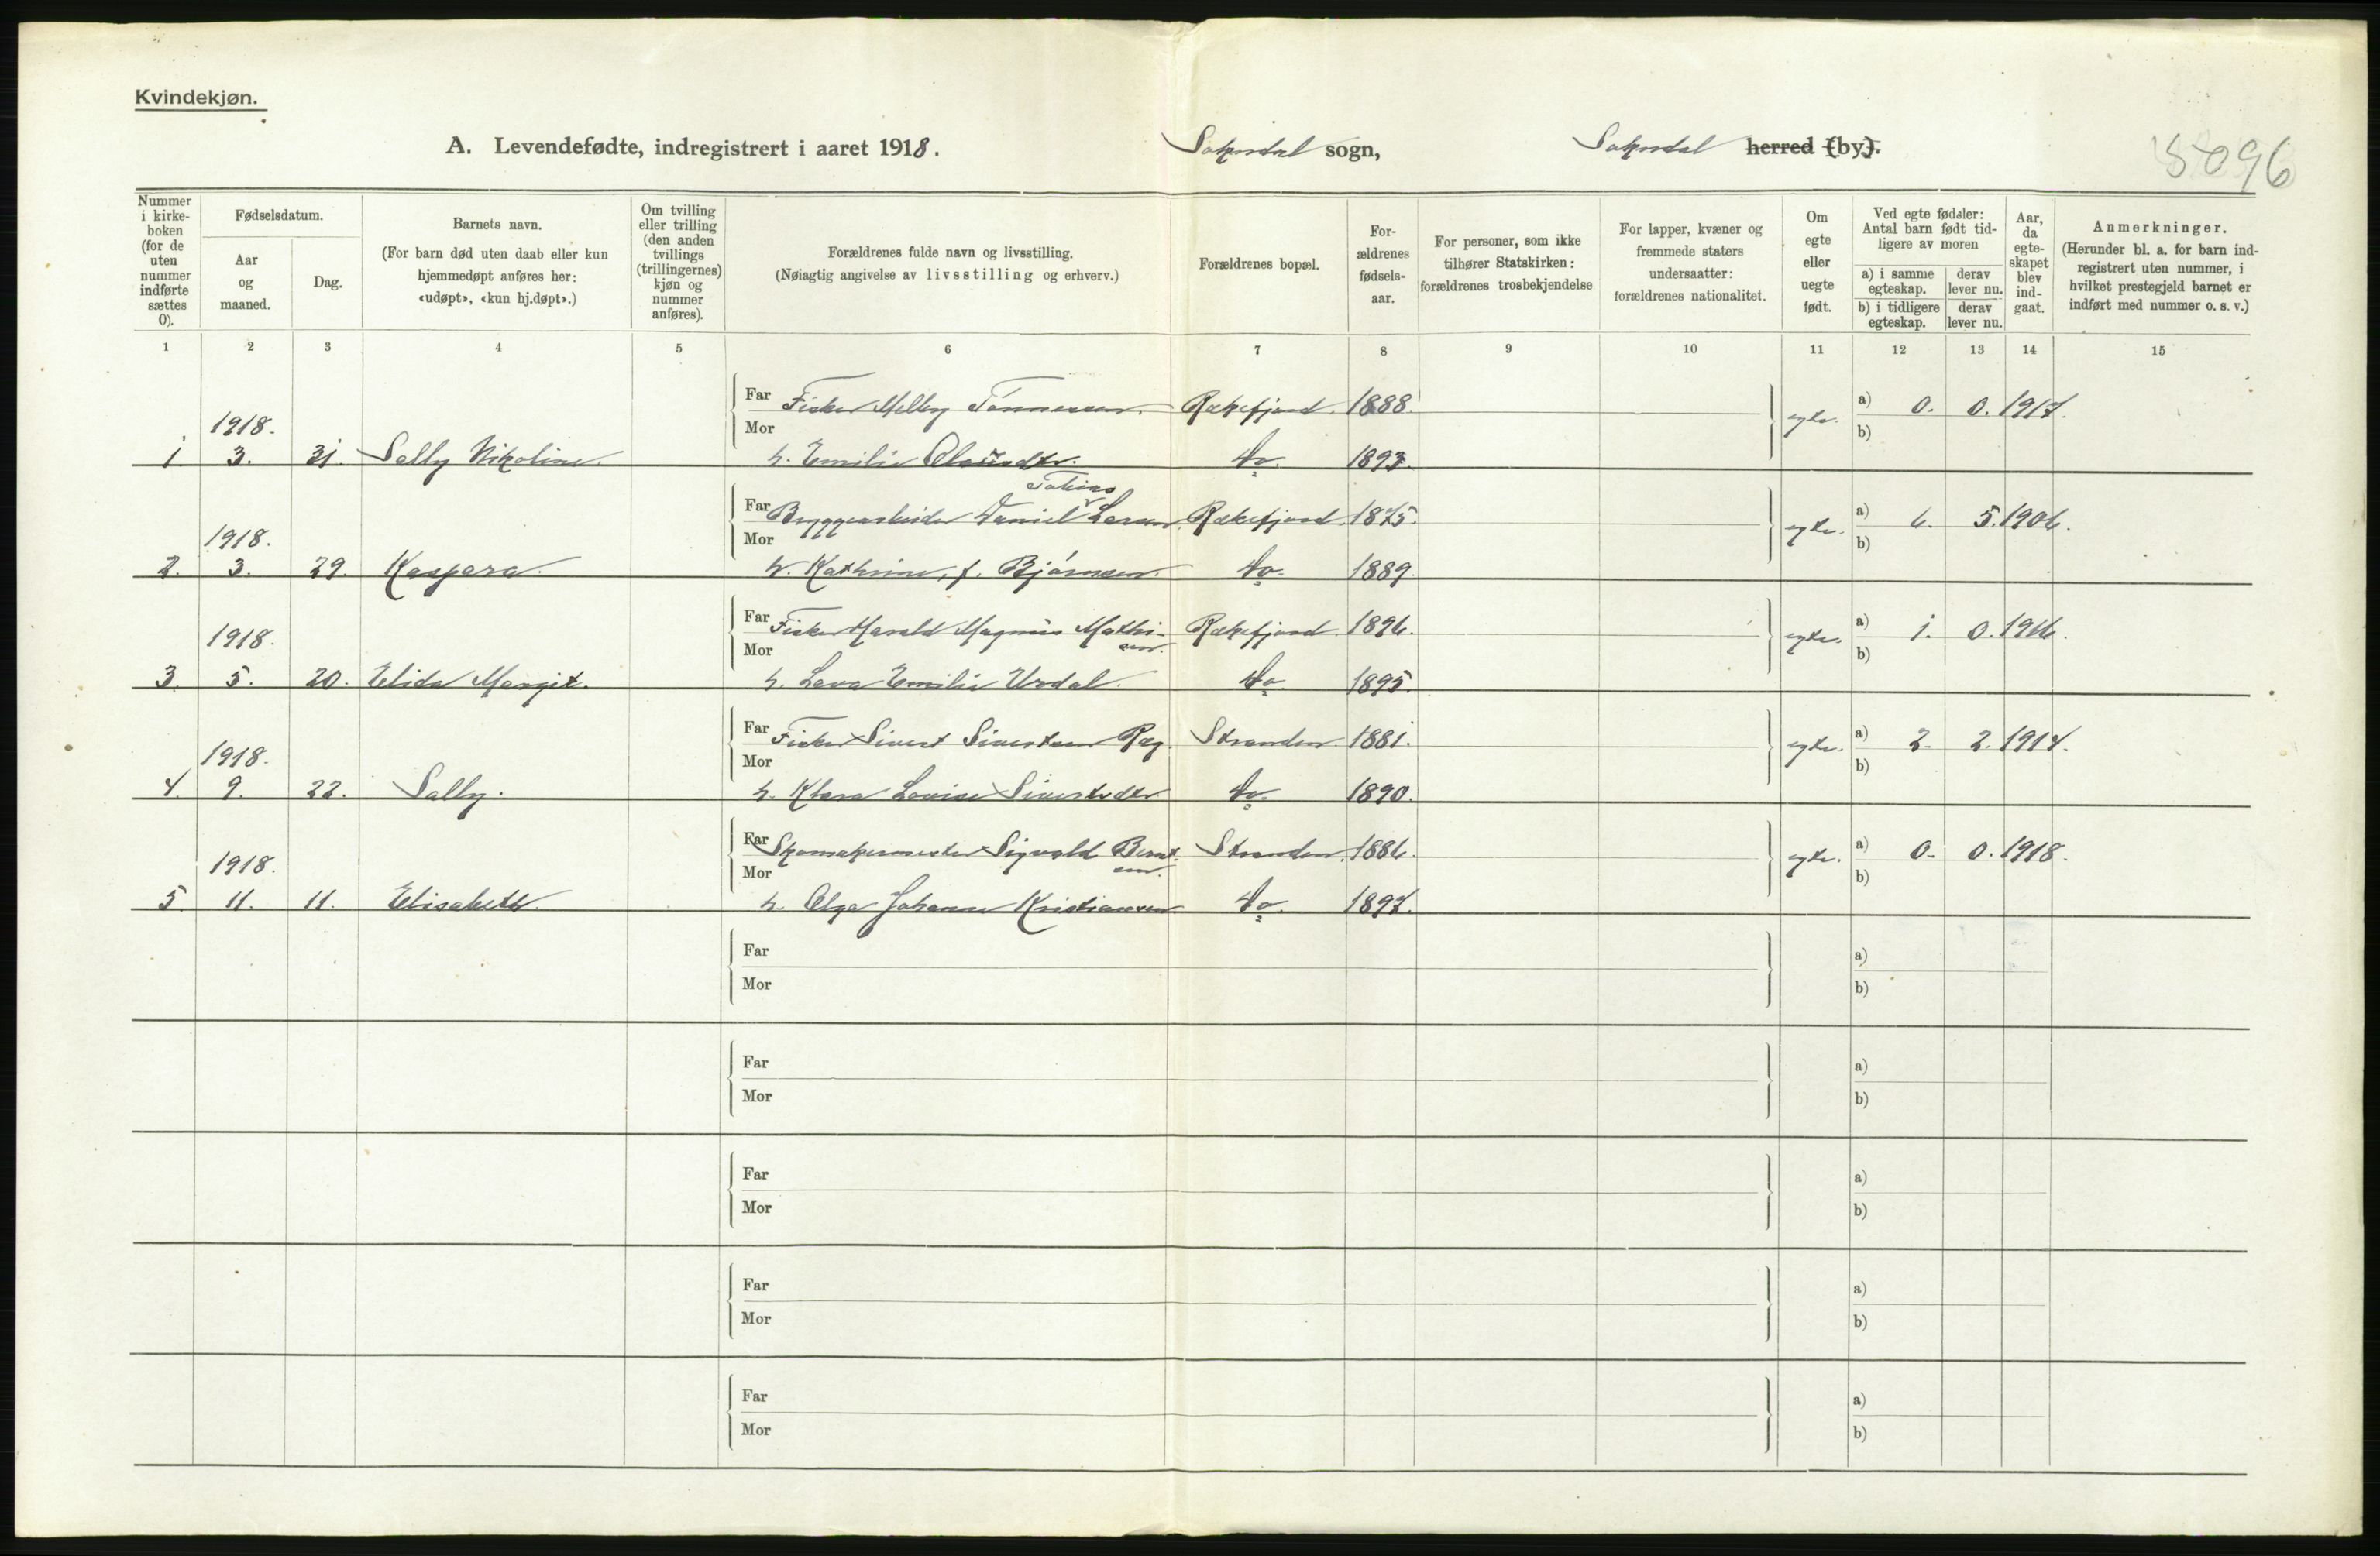 Kvindekjøn.
A. Levendefødte, indregistrert i aaret 1918. Sokndal sogn, Sokndal herred (by).
5096
Nummer i kirkeboken (for de uten nummer indførte sættes 0).
Fødselsdatum.
Aar og maaned.
Dag.
Barnets navn.
(For barn død uten daab eller kun hjemmedøpt anføres her: «udøpt», «kun hj.døpt».)
Om tvilling eller trilling (den anden tvillings (trillingernes) kjøn og nummer anføres).
Forældrenes fulde navn og livsstilling.
(Nøiagtig angivelse av livsstilling og erhverv.)
Forældrenes bopæl.
For-ældrenes fødsels-aar.
For personer, som ikke tilhører Statskirken: forældrenes trosbekjendelse
For lapper, kvæner og fremmede staters undersaatter: forældrenes nationalitet.
Om egte eller uegte født.
Ved egte fødsler: Antal barn født tidligere av moren
a) i samme egteskap. derav lever nu.
b) i tidligere egteskap. derav lever nu.
Aar, da egte-skapet blev ind-gaat.
Anmerkninger.
(Herunder bl. a. for barn ind-registrert uten nummer, i hvilket prestegjeld barnet er indført med nummer o. s. v.)
1 2 3 4 5 6 7 8 9 10 11 12 13 14 15
1918. Far Fisker Melby Tønnessen. Rækefjord. 1888. egte. a) 0. 0. 1917.
1 3. 31. Sally Nikoline. Mor h. Emilie Olausdtr. do. 1893. b)
Tobias
1918. Far Bryggearbeider Daniel Larsen. Rækefjord. 1875. egte. a) 6. 5. 1906.
2. 3. 29. Kaspara. Mor h. Kathrine, f. Bjørnsen. do. 1889. b)
1918. Far Fisker Harald Magnus Mathisen. Rækefjord. 1896. egte. a) 1. 0. 1916.
3. 5. 20. Elida Margit. Mor h. Lava Emilie Urdal. do. 1895. b)
1918. Far Fisker Sivert Sivertsen Ræg. Stranden. 1881. egte. a) 2. 2. 1914.
4. 9. 22. Sally. Mor h. Klara Lovise Sivertsdtr do. 1890. b)
1918. Far Skomakermester Sigvald Berntsen. Stranden. 1886. egte. a) 0. 0. 1918.
5. 11. 11. Elisabeth. Mor h. Olga Johanne Kristiansen do. 1897. b)
Far a)
Mor b)
Far a)
Mor b)
Far a)
Mor b)
Far a)
Mor b)
Far a)
Mor b)